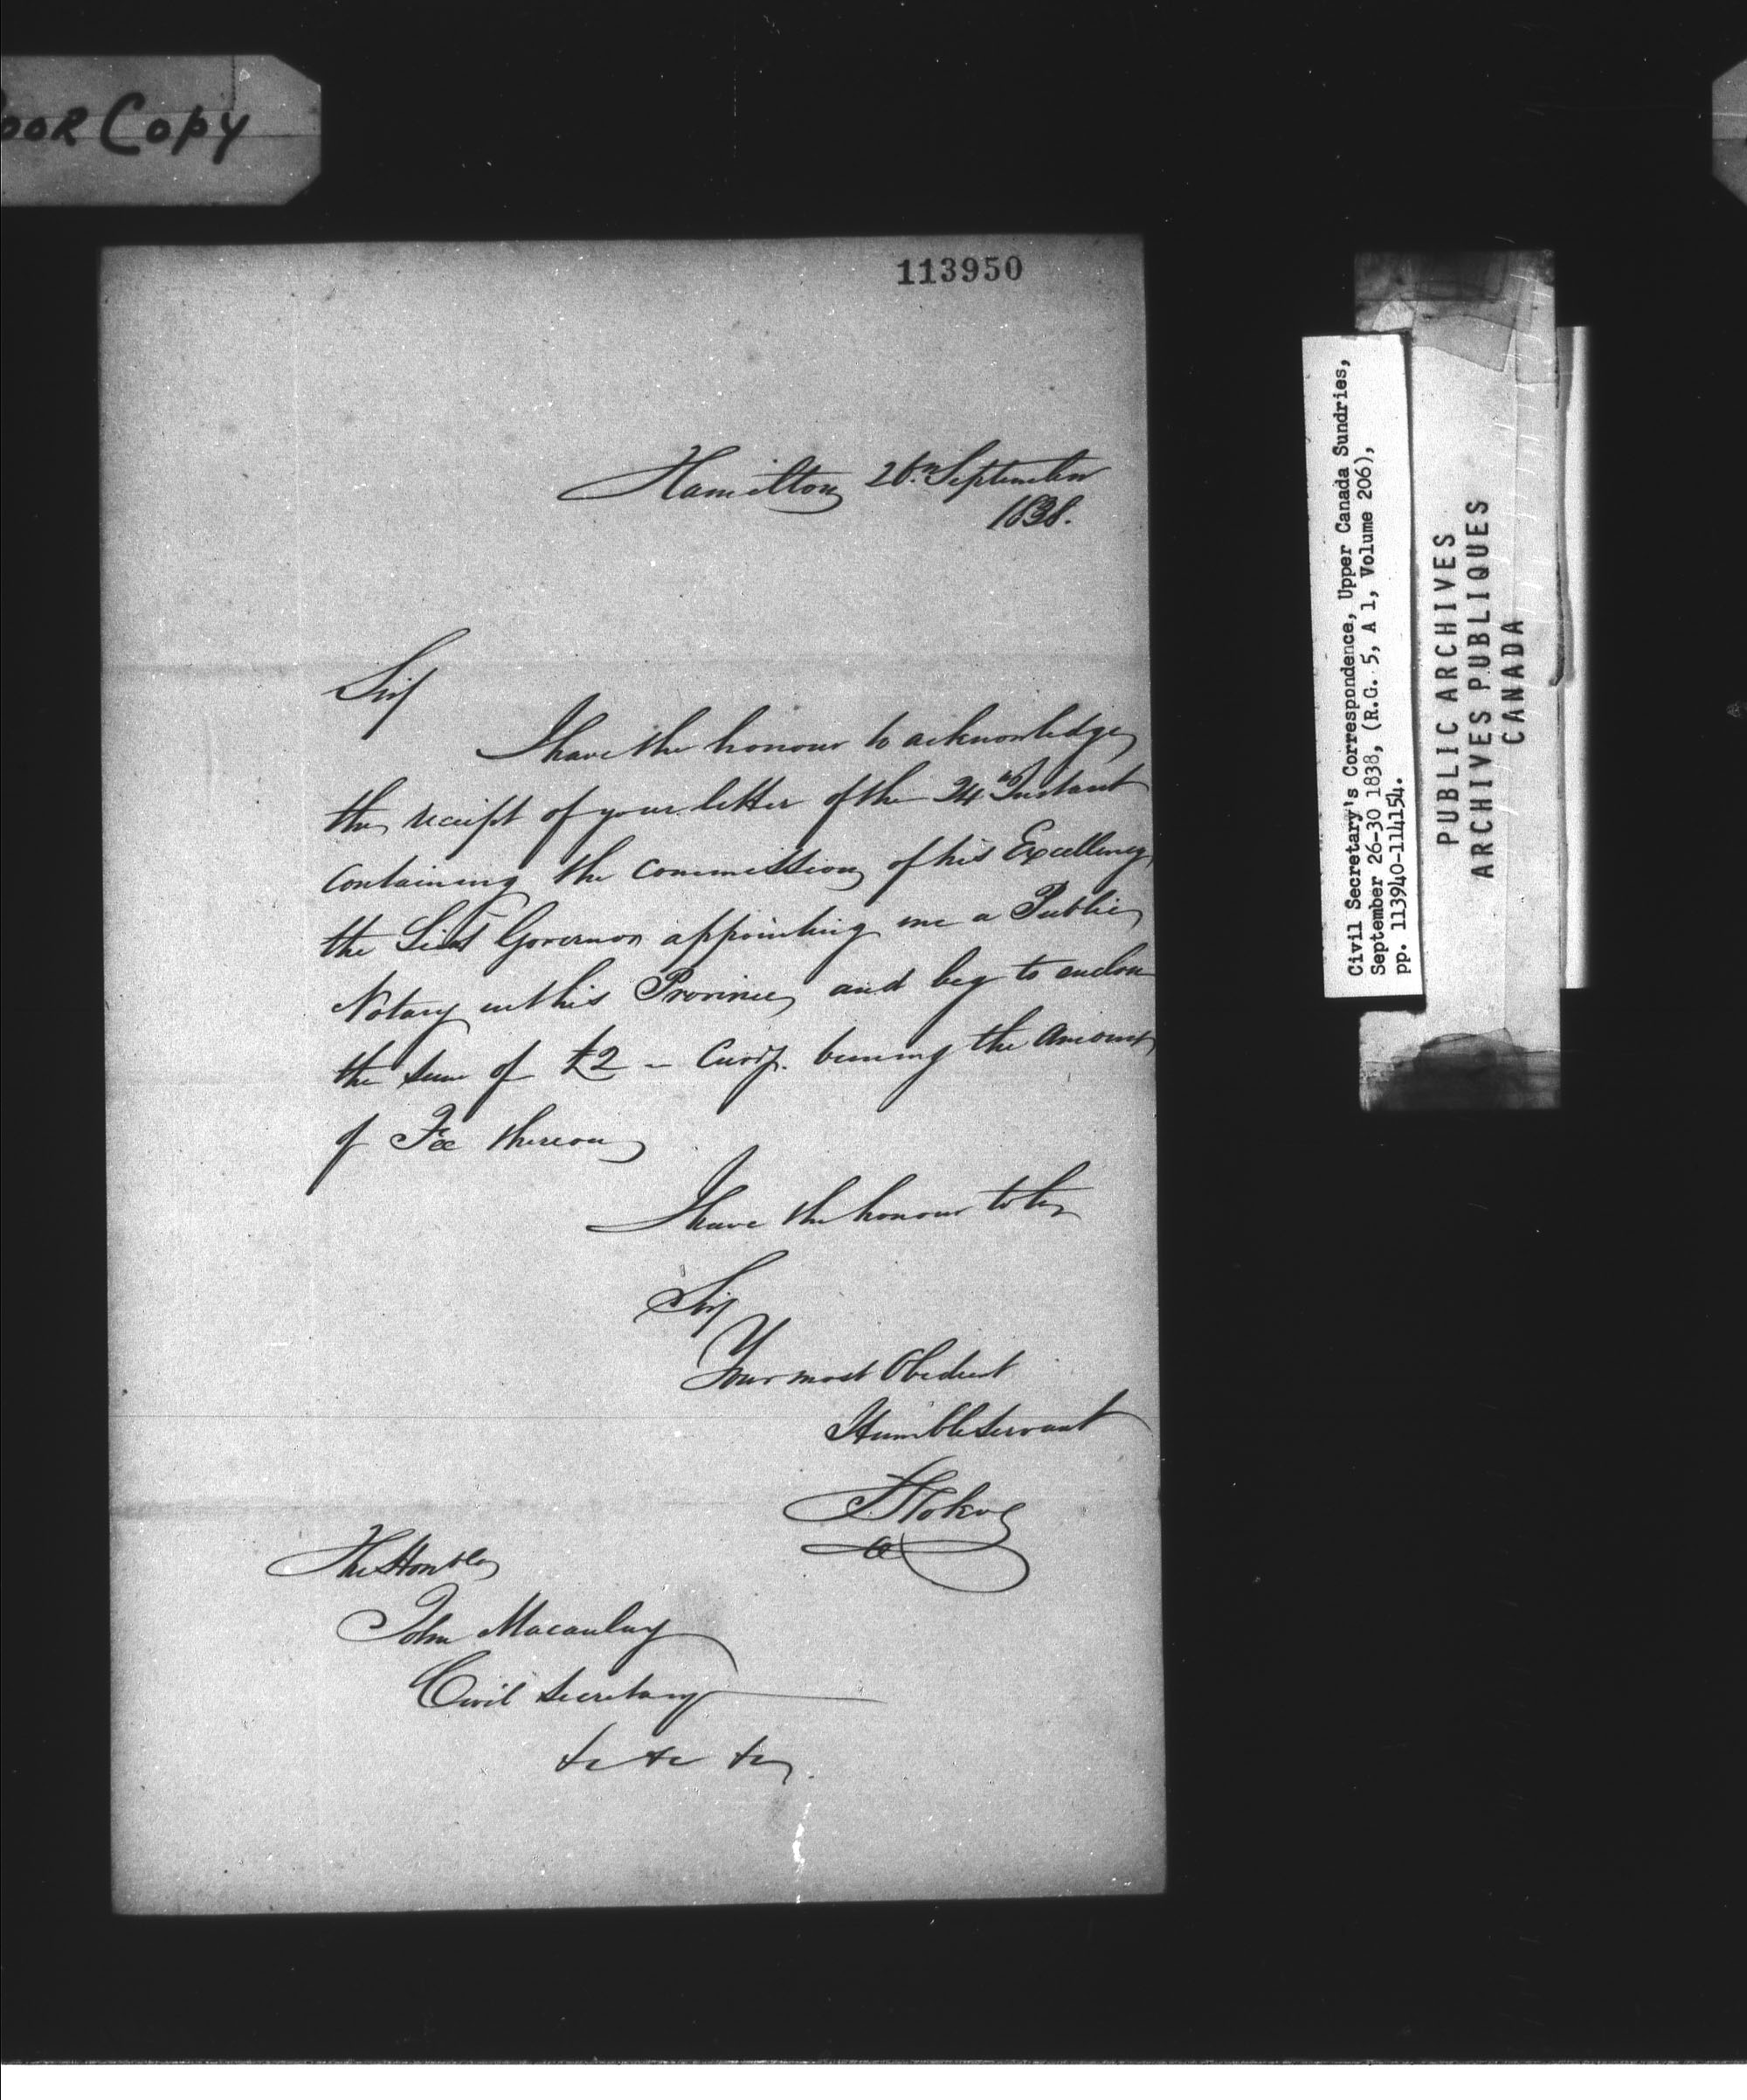 oor Copy
113950
Hamilton 26th September
1838.
Sir
I have the honour to acknowledge
the receipt of your letter of the 24th Instant
containing the commission of his Excellency
the Lieut Governor appointing me a Public
Notary in this Province, and beg to enclose
the sum of £2 – Curry. beining the amount
of Fee thereon
I have the honour to be
Sir
Your most Obedient
Humble Servant
Stokoe
The Honble
John Macaulay
Civil Secretary
&c &c &c.
Civil Secretary's Correspondence, Upper Canada Sundries,
September 26-30 1838, (R.G. 5, A 1, Volume 206),
pp. 113940-114154.
PUBLIC ARCHIVES
ARCHIVES PUBLIQUES
CANADA